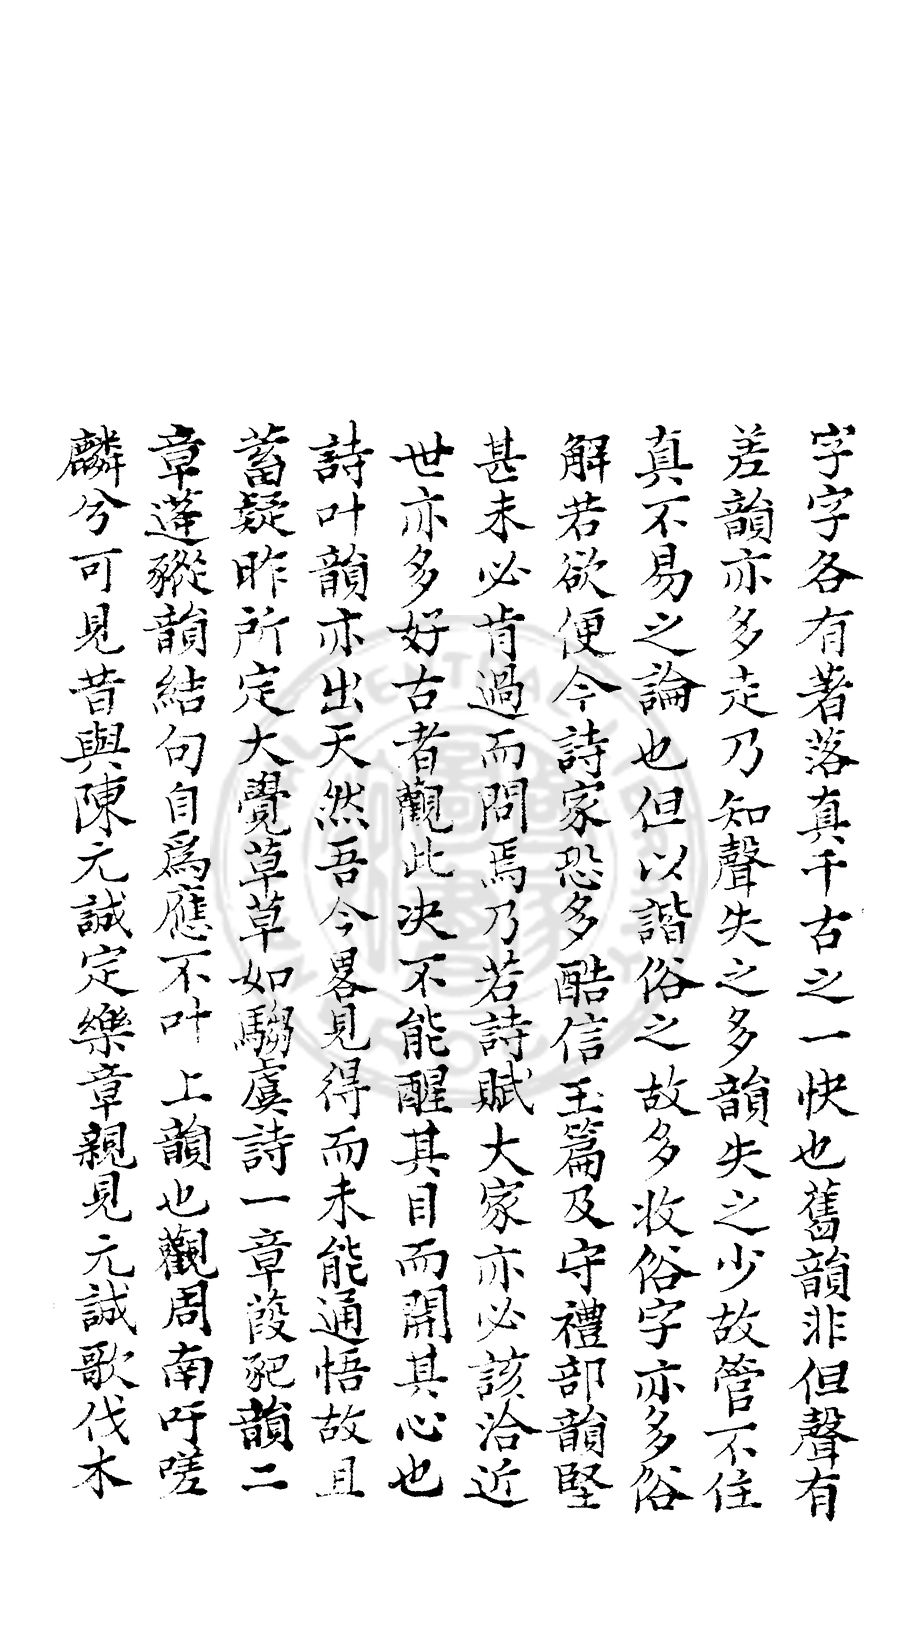 字字各有著落真千古之一快也舊韻非但聲有
差韻亦多走乃知聲失之多韻失之少故管不住
真不易之論也但以諧俗之故多收俗字亦多俗
解若欲便今詩家恐多酷信玉篇及守禮部韻堅
甚未必肯過而問焉乃若詩賦大家亦必該洽近
世亦多好古者觀此决不能醒其目而開其心也
詩叶韻亦出天然吾今畧見得而未能通悟故且
蓄疑昨所定大覺草草如騶虞詩一章葭豝韻二
章蓬豵韻結句自爲應不叶上韻也觀周南吁嗟
麟兮可見昔與陳元誠定樂章親見元誠歌伐木